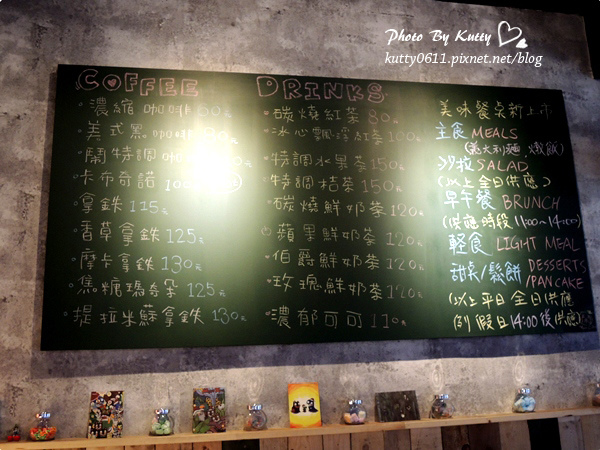 Photo By Kutty
kutty0611.pixnet.net/blog
COFFEE
濃縮咖啡 80元
美式黑咖啡
鬧特調咖啡
卡布奇諾
拿鐵 115元
香草拿鐵 125元
摩卡拿鐵 130元
焦糖瑪奇朵 125元
提拉米蘇拿鐵 130元
DRINKS
碳燒紅茶 80元
冰心飄浮紅茶 100元
特調水果茶 150元
特調桔茶 150元
碳燒鮮奶茶 120元
蘋果鮮奶茶 120元
伯爵鮮奶茶 120元
玫瑰鮮奶茶 120元
濃郁可可 110元
美味餐点新上市
主食 MEALS
(義大利麵 燉飯)
沙拉 SALAD
(以上全日供應)
早午餐 BRUNCH
(供應時段 11:00~14:00)
輕食 LIGHT MEAL
甜点/鬆餅 DESSERTS
/PANCAKE
(以上平日全日供應
例假日14:00後供應)